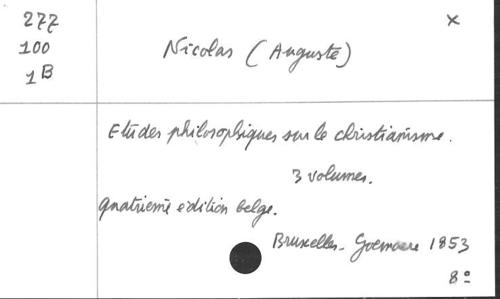 277
100
1B
x
Nicolas (Auguste)
Etudes philosophiques sur le christianisme.
3 volumes.
quatrieme edition belge.
Bruxelles - Goemaere 1853
8º